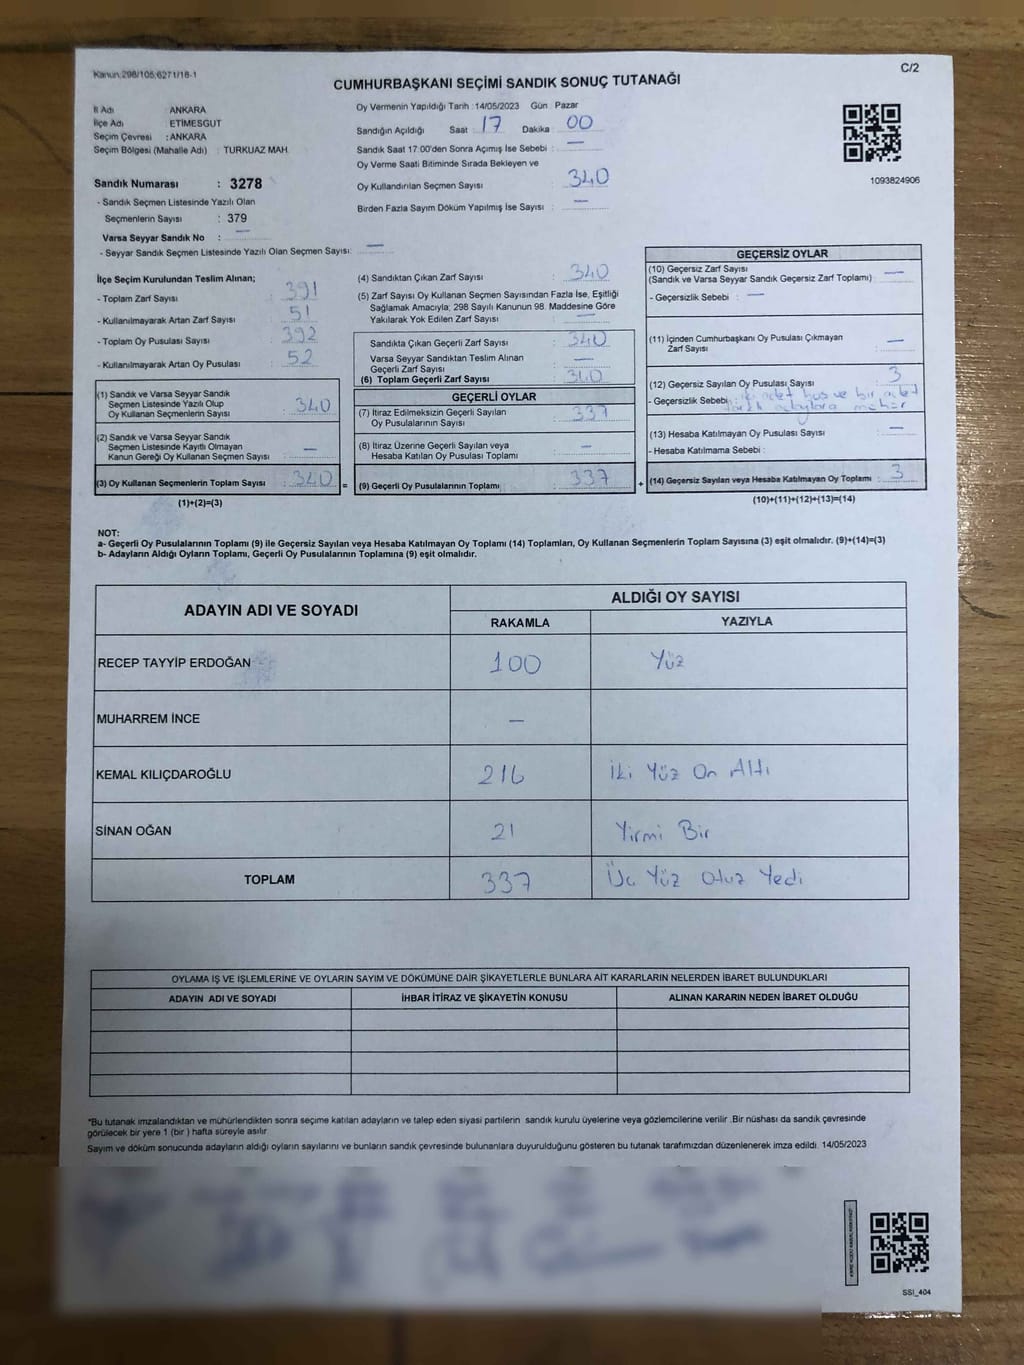 Kanun 298/105,6271/18-1
C/2
CUMHURBAŞKANI SEÇİMİ SANDIK SONUÇ TUTANAĞI
İl Adı : ANKARA
İlçe Adı : ETİMESGUT
Seçim Çevresi : ANKARA
Seçim Bölgesi (Mahalle Adı) : TURKUAZ MAH.
Sandık Numarası : 3278
- Sandık Seçmen Listesinde Yazılı Olan
Seçmenlerin Sayısı : 379
Varsa Seyyar Sandık No : —
- Seyyar Sandık Seçmen Listesinde Yazılı Olan Seçmen Sayısı: —
Oy Vermenin Yapıldığı Tarih : 14/05/2023 Gün Pazar
Sandığın Açıldığı Saat : 17 Dakika : 00
Sandık Saat 17:00'den Sonra Açımış İse Sebebi : —
Oy Verme Saati Bitiminde Sırada Bekleyen ve
Oy Kullandırılan Seçmen Sayısı : 340
Birden Fazla Sayım Döküm Yapılmış İse Sayısı : —
1093824906
İlçe Seçim Kurulundan Teslim Alınan;
- Toplam Zarf Sayısı : 391
- Kullanılmayarak Artan Zarf Sayısı : 51
- Toplam Oy Pusulası Sayısı : 392
- Kullanılmayarak Artan Oy Pusulası : 52
(1) Sandık ve Varsa Seyyar Sandık
Seçmen Listesinde Yazılı Olup
Oy Kullanan Seçmenlerin Sayısı : 340
(2) Sandık ve Varsa Seyyar Sandık
Seçmen Listesinde Kayıtlı Olmayan
Kanun Gereği Oy Kullanan Seçmen Sayısı : —
(3) Oy Kullanan Seçmenlerin Toplam Sayısı : 340 =
(1)+(2)=(3)
(4) Sandıktan Çıkan Zarf Sayısı : 340
(5) Zarf Sayısı Oy Kullanan Seçmen Sayısından Fazla İse, Eşitliği
Sağlamak Amacıyla, 298 Sayılı Kanunun 98. Maddesine Göre
Yakılarak Yok Edilen Zarf Sayısı :
Sandıkta Çıkan Geçerli Zarf Sayısı : 340
Varsa Seyyar Sandıktan Teslim Alınan
Geçerli Zarf Sayısı : —
(6) Toplam Geçerli Zarf Sayısı : 340
GEÇERLİ OYLAR
(7) İtiraz Edilmeksizin Geçerli Sayılan
Oy Pusulalarının Sayısı : 337
(8) İtiraz Üzerine Geçerli Sayılan veya
Hesaba Katılan Oy Pusulası Toplamı : —
(9) Geçerli Oy Pusulalarının Toplamı : 337 +
GEÇERSİZ OYLAR
(10) Geçersiz Zarf Sayısı
(Sandık ve Varsa Seyyar Sandık Geçersiz Zarf Toplamı) : —
- Geçersizlik Sebebi : —
(11) İçinden Cumhurbaşkanı Oy Pusulası Çıkmayan
Zarf Sayısı : —
(12) Geçersiz Sayılan Oy Pusulası Sayısı : 3
- Geçersizlik Sebebi : iki adet boş ve bir adet
farklı adaylara mühür
(13) Hesaba Katılmayan Oy Pusulası Sayısı : —
- Hesaba Katılmama Sebebi :
(14) Geçersiz Sayılan veya Hesaba Katılmayan Oy Toplamı : 3
(10)+(11)+(12)+(13)=(14)
NOT:
a- Geçerli Oy Pusulalarının Toplamı (9) ile Geçersiz Sayılan veya Hesaba Katılmayan Oy Toplamı (14) Toplamları, Oy Kullanan Seçmenlerin Toplam Sayısına (3) eşit olmalıdır. (9)+(14)=(3)
b- Adayların Aldığı Oyların Toplamı, Geçerli Oy Pusulalarının Toplamına (9) eşit olmalıdır.
ADAYIN ADI VE SOYADI
ALDIĞI OY SAYISI
RAKAMLA YAZIYLA
RECEP TAYYİP ERDOĞAN 100 Yüz
MUHARREM İNCE —
KEMAL KILIÇDAROĞLU 216 İki Yüz On Altı
SİNAN OĞAN 21 Yirmi Bir
TOPLAM 337 Üç Yüz Otuz Yedi
OYLAMA İŞ VE İŞLEMLERİNE VE OYLARIN SAYIM VE DÖKÜMÜNE DAİR ŞİKAYETLERLE BUNLARA AİT KARARLARIN NELERDEN İBARET BULUNDUKLARI
ADAYIN ADI VE SOYADI İHBAR İTİRAZ VE ŞİKAYETİN KONUSU ALINAN KARARIN NEDEN İBARET OLDUĞU
*Bu tutanak imzalandıktan ve mühürlendikten sonra seçime katılan adayların ve talep eden siyasi partilerin sandık kurulu üyelerine veya gözlemcilerine verilir. Bir nüshası da sandık çevresinde
görülecek bir yere 1 (bir) hafta süreyle asılır.
Sayım ve döküm sonucunda adayların aldığı oyların sayılarını ve bunların sandık çevresinde bulunanlara duyurulduğunu gösteren bu tutanak tarafımızdan düzenlenerek imza edildi. 14/05/2023
SSI_404